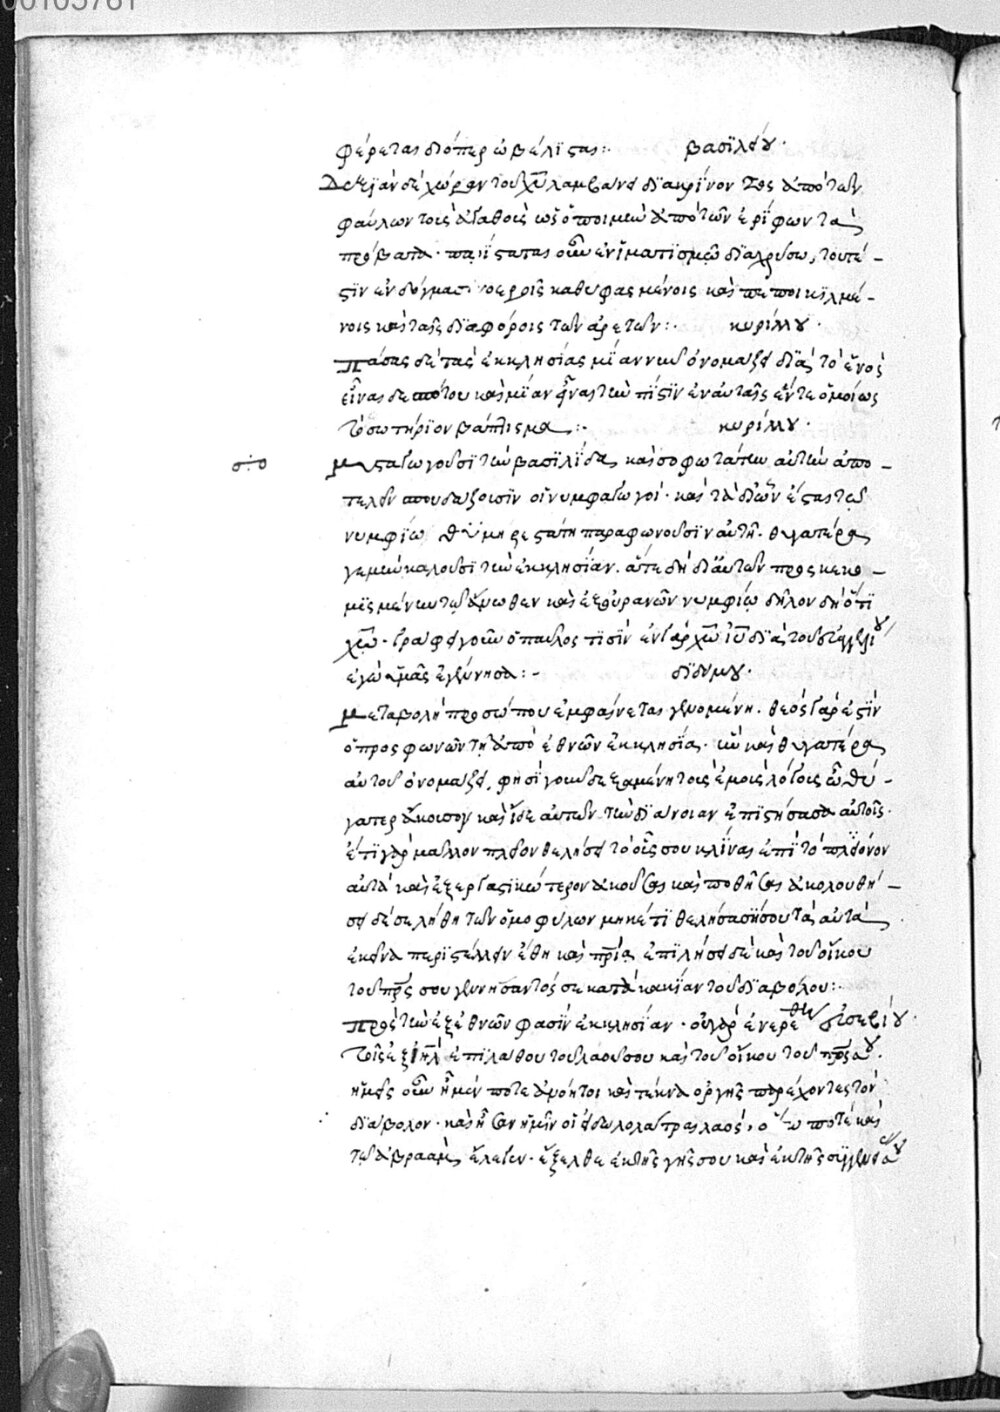 00105761
φέρεται διόπερ ὠβέλισται:· βασϊλείου·
Δεξιὰν δὲ χώραν τοῦ χῦ λαμβάνει διακρίνοντος ἀπὸ τῶν
φαύλων τοὺς ἀγαθοὺς ὡς ὁ ποιμὴν ἀπὸ τῶν ἐρίφων τὰ
πρόβατα· παρίσταται οὖν ἐν ἱματισμῷ διαχρύσω, τουτέ–
στιν ἐν δόγμασι νοεροῖς καθυφασμένοις καὶ πεποικϊλμέ–
νοις καὶ ταῖς διαφόροις τῶν ἀρετῶν:· κυρίλλου·
Πάσας δὲ τὰς ἐκκλησίας μίαν νῦν ὀνομάζει διὰ τὸ ἑνὸς
εἶναι δεσπότου καὶ μίαν εἶναι τὴν πίστϊν ἐν αὐταῖς ἕν τε ὁμοίως
τὸ σωτήριον βάπτισμα:· κυρίλλου·
μυσταγωγοῦσι τὴν βασιλίδα καὶ σοφωτάτην αὐτὴν ἀπο–
τελεῖν σπουδάζουσϊν οἱ νυμφαγωγοί· καὶ τὰ δι' ὧν ἔσται τῷ
νυμφίω θϋμηρεστάτη παραφωνοῦσϊν αὐτῆ· θυγατέρα
γε μὴν καλοῦσι τὴν ἐκκλησίαν· ἅτε δὴ δι' αὐτῶν προσκεκο–
μϊσμένην τῷ ἄνωθεν καὶ ἐξ οὐρανῶν νυμφίω δῆλον δὴ ὅτϊ
χῶ· γράφει γοῦν ὁ παῦλος τισϊν ἐν γὰρ χῶ ἰῦ διὰ τοῦ εὐαγγελίου
ἐγὼ ὑμᾶς ἐγέννησα:– δϊδύμου·
μεταβολὴ προσώπου ἐμφαίνεται γενομένη· θεὸς γάρ ἐστϊν
ὁ προσφωνῶν τῆ ἀπὸ ἐθνῶν ἐκκλησία· ἣν καὶ θυγατέρα
αὐτοῦ ὀνομάζει, φησὶ γοῦν δεξαμένη τοὺς ἐμοὺς λόγους ὦ θύ–
γατερ ἄκουσον καὶ ἴδε αὐτῶν τὴν διάνοιαν ἐπϊστήσασα αὐτοῖς·
ἔτϊ γὰρ μᾶλλον πλέον θελήσει τὸ οὖς σου κλῖναι ἐπὶ τὸ πλεῖον
αὐτὰ καὶ ἐξεργαστικώτερον ἀκοῦσαι καὶ ποθῆσαι ἀκολουθή–
σει δέ σε λήθη τῶν ὁμοφύλων μηκέτϊ θελήσασης οὐ τὰ αὐτὰ
ἐκεῖνα περϊστέλλειν ἔθη καὶ πρία ἐπϊλήσει δὲ καὶ τοῦ οἴκου
τοῦ πρς σου γεννήσαντός σε κατὰ κακίαν τοῦ διαβόλου:·
Πρὸς τὴν ἐξ ἐθνῶν φασὶν ἐκκλησίαν· εὐσεβίου·
τοῖς ἐξ ιηλ ἐπϊλάθου τοῦ λαοῦ σου καὶ τοῦ οἴκου τοῦ πρς σου·
ἡμεῖς οὖν ἦμέν ποτε ἀνόητοι καὶ τέκνα ὀργῆς παρέχοντες τὸν
διάβολον· καὶ ἦσαν ἡμῖν οἱ εἰδωλολάτραι λαός, ποτὲ καὶ
τῷ ἀβραὰμ ἔλεγεν· ἔξελθε ἐκ τῆς γῆς σου καὶ ἐκ τῆς συγγενείας σου